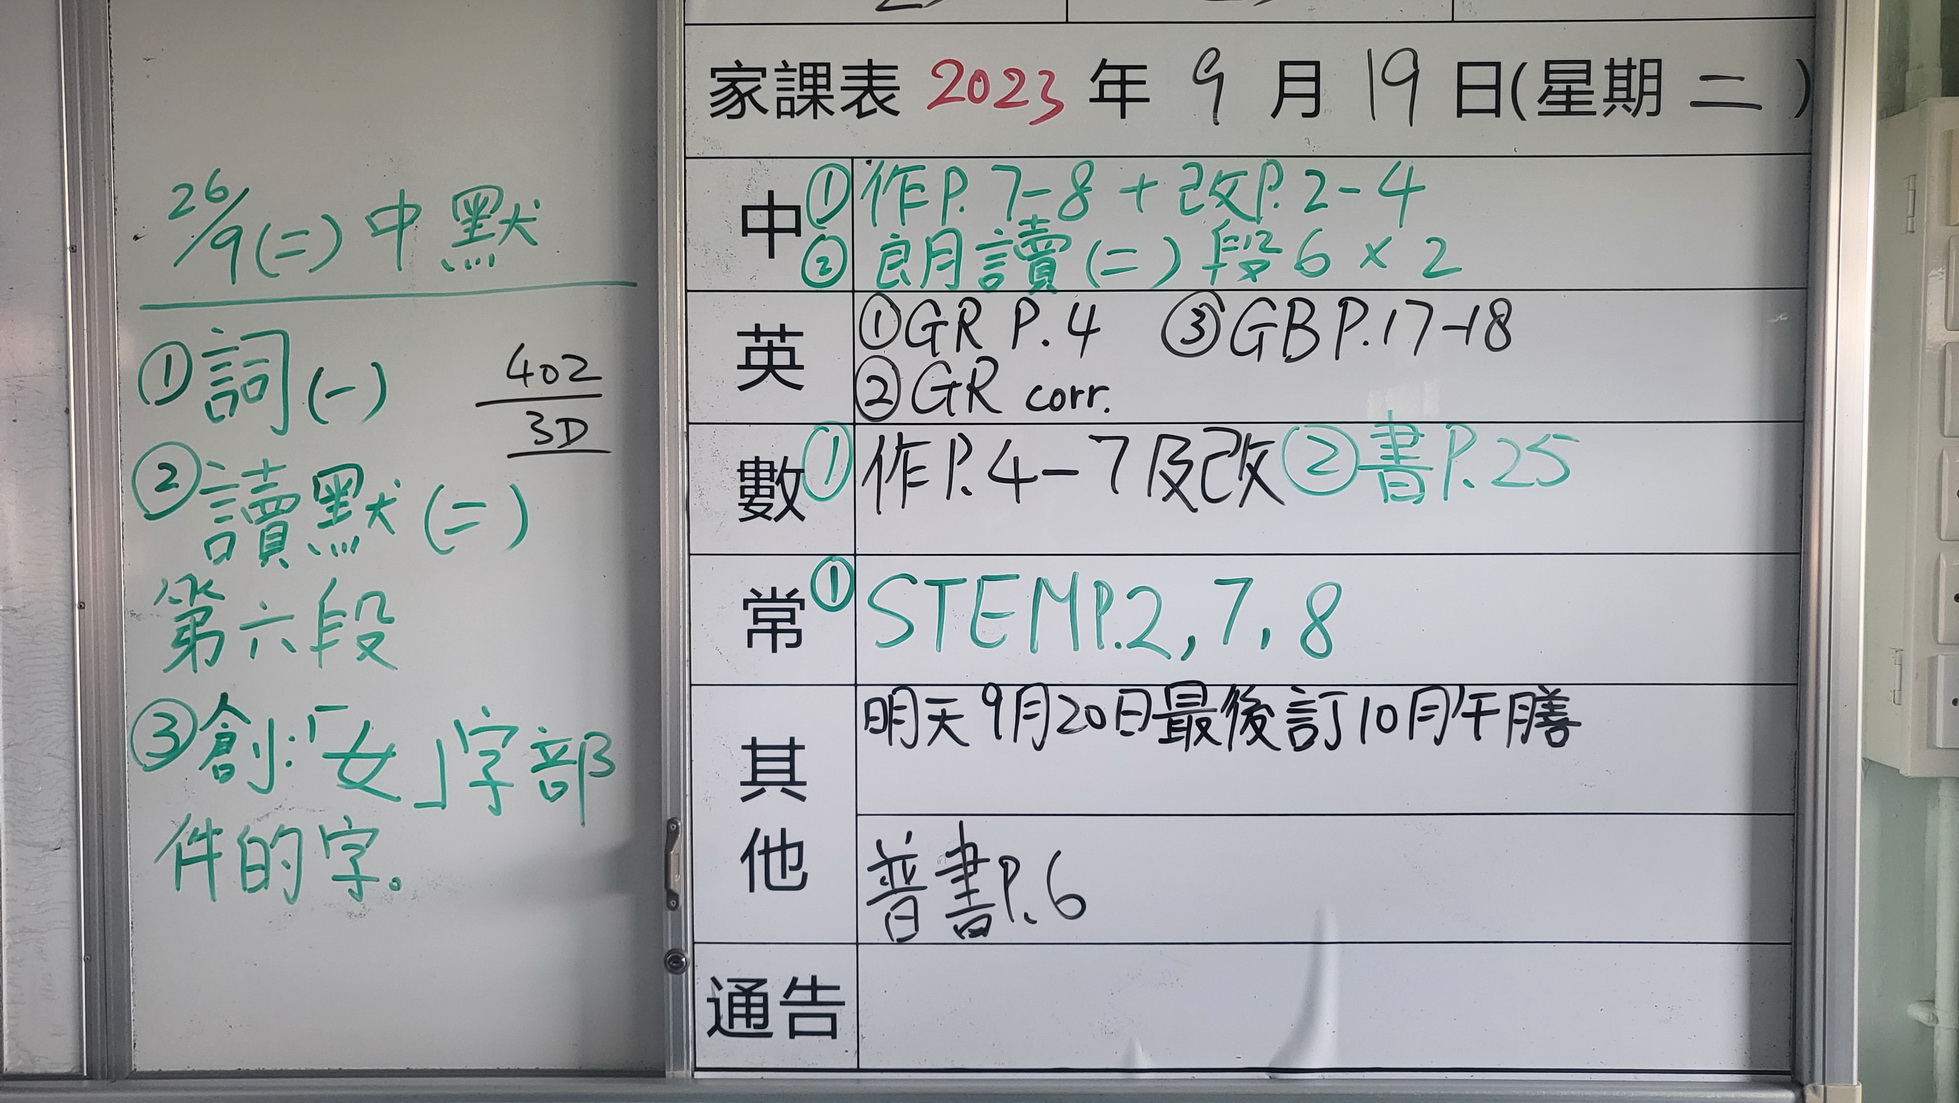 26/9(二)中默
①詞(一)
402
3D
②讀默(二)
第六段
③創:「女」字部
件的字。
家課表 2023 年 9 月 19 日(星期 二 )
中 ①作P.7-8 + 改P.2-4
②朗讀(二)段6×2
英 ①GR P.4 ③GB P.17-18
②GR corr.
數 ①作P.4-7及改②書P.25
常 ①STEM P.2, 7, 8
其他
明天9月20日最後訂10月午膳
普書P.6
通告